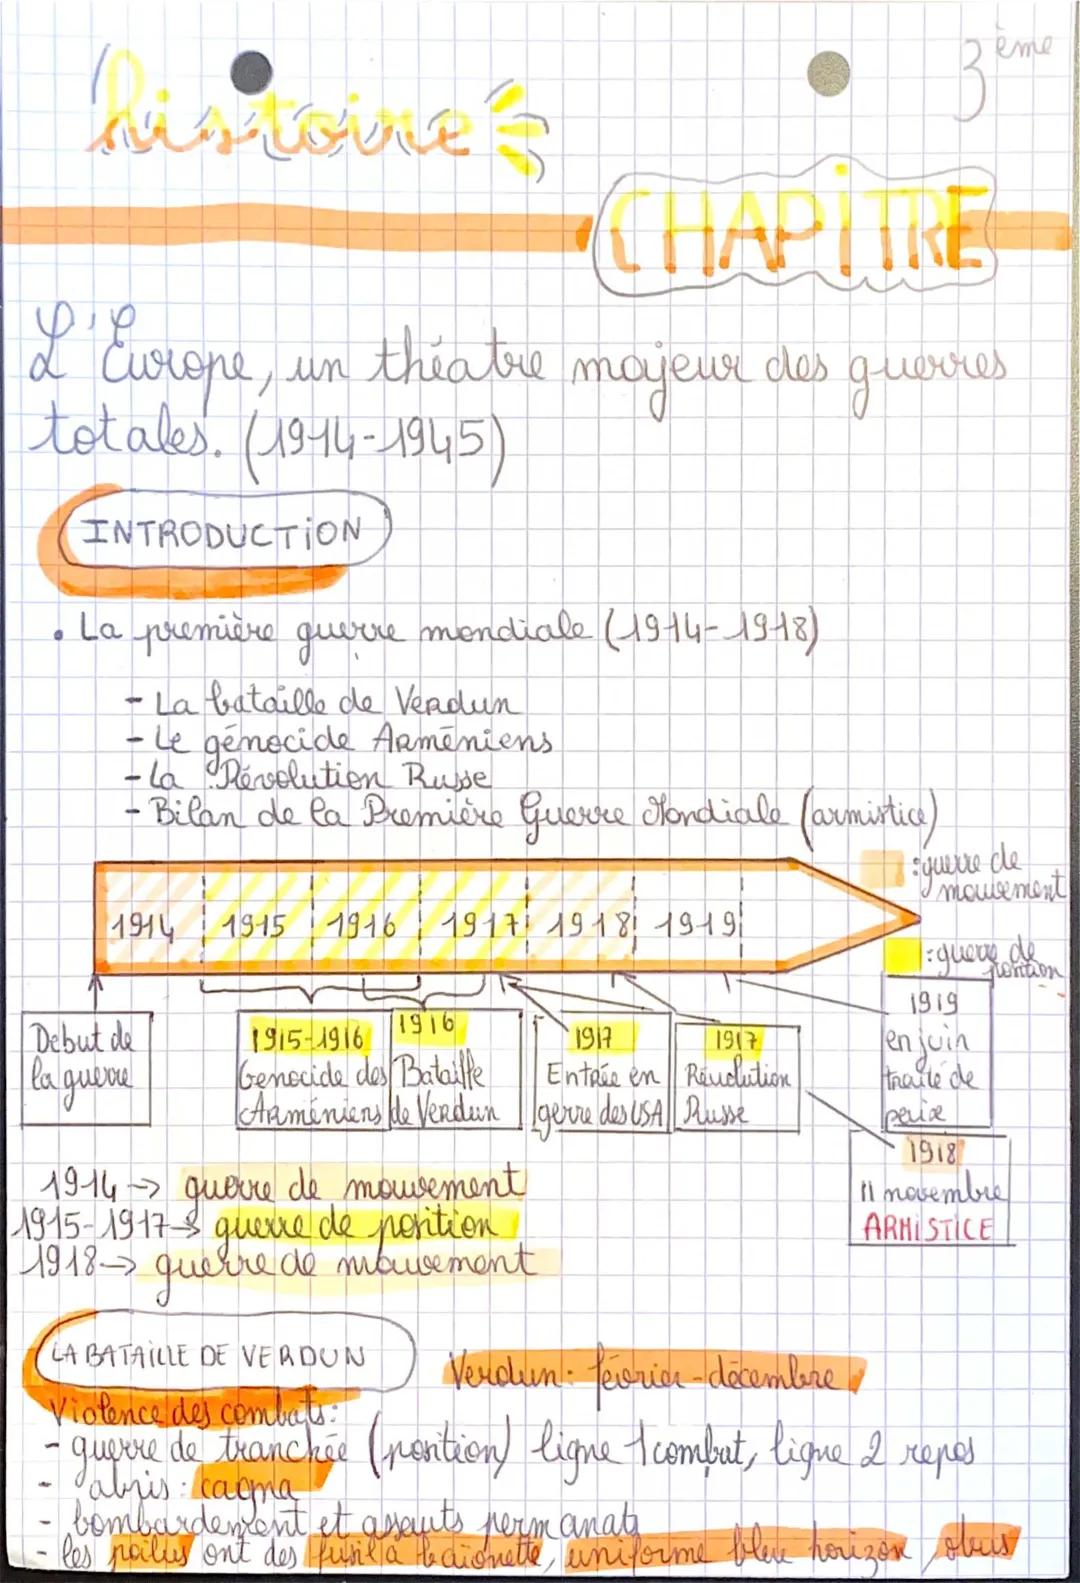 3ème
histoire
CHAPITRE
L'Europe, un théatre majeur des guerres
totales. (1914-1945)
INTRODUCTION
• La première guerre mondiale (1914-1918)
- La bataille de Verdun
- Le génocide Arméniens
- La Révolution Russe
- Bilan de la Première Guerre Mondiale (armistice)
: guerre de
mouvement
1914 1915 1916 1917 1918 1919
: guerre de
position
Debut de
la guerre
1915-1916
Genocide des
Arméniens
1916
Bataille
de Verdun
1917
Entrée en
gerre des USA
1917
Révolution
Russe
1919
en juin
traité de
paix
1918
11 novembre
ARMISTICE
1914 → guerre de mouvement
1915-1917 → guerre de position
1918 → guerre de mouvement
LA BATAILLE DE VERDUN
Verdun : février - décembre
Violence des combats :
- guerre de tranchée (position) ligne 1 combat, ligne 2 repos
- abris : cagna
- bombardement et assauts permanats
- les poilus ont des fusil à baïonette, uniforme bleu horizon, obus